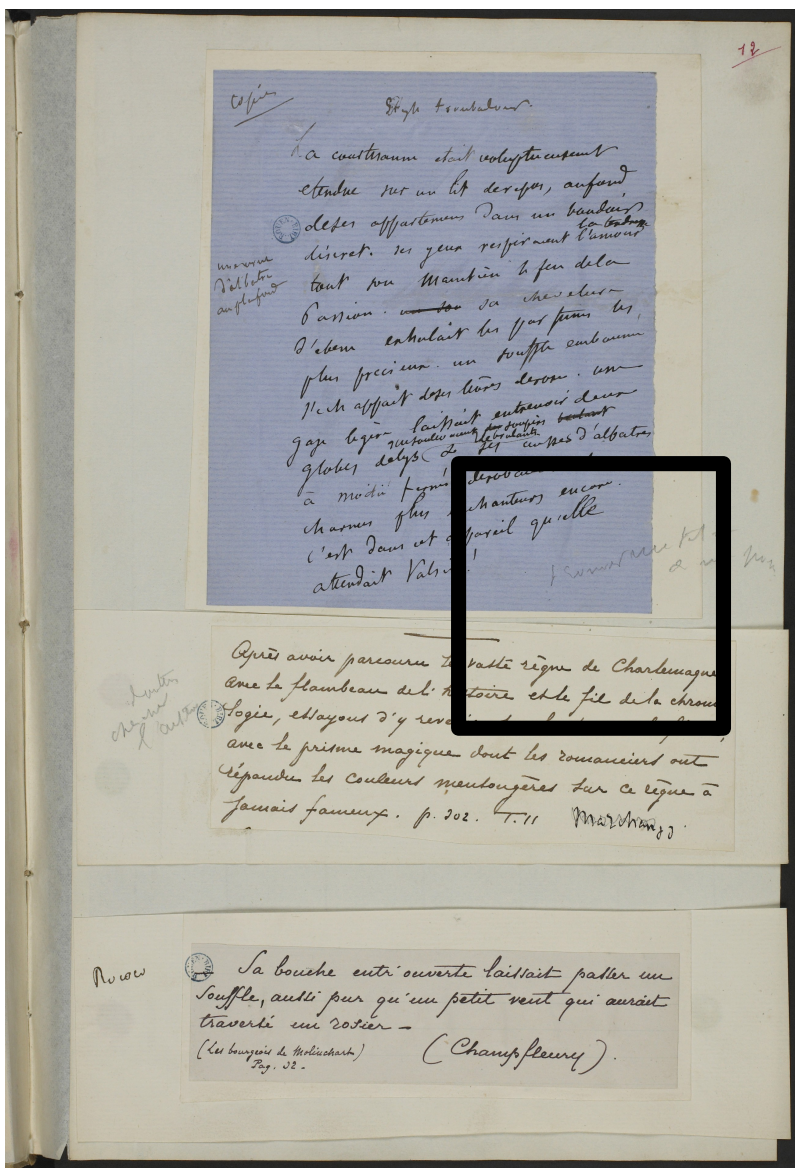 12
Copier
Style troubadour.
La courtisanne était voluptueusement
étendue sur un lit de repos, au fond
de ses appartemens dans un boudoir
discret. ses yeux respiraient l'amour
tout son maintien le feu de la
Passion. sa chevelure
d'ébène exhalait les parfums les
plus précieux. un souffle embaumé
s'échappait de ses lèvres de rose. une
gaze légère laissait entrevoir deux
globes de lys
à moitié
charmes plus enchanteurs encore.
c'est dans cet appareil qu'elle
attendait Valsin!
d'albatre
au plafond
Après avoir parcouru le vaste règne de Charlemagne
avec le flambeau de l'histoire et le fil de la chrono
logie, essayons d'y
avec le prisme magique dont les romanciers ont
répandu les couleurs mensongères sur ce règne à
jamais fameux. p. 302. T. II Marchangy
toutes
l'autre
Rococo
Sa bouche entr'ouverte laissait passer un
souffle, aussi pur qu'un petit vent qui aurait
traversé un rosier —
(Les bourgeois de Molinchart) (Champfleury).
Pag. 32 -